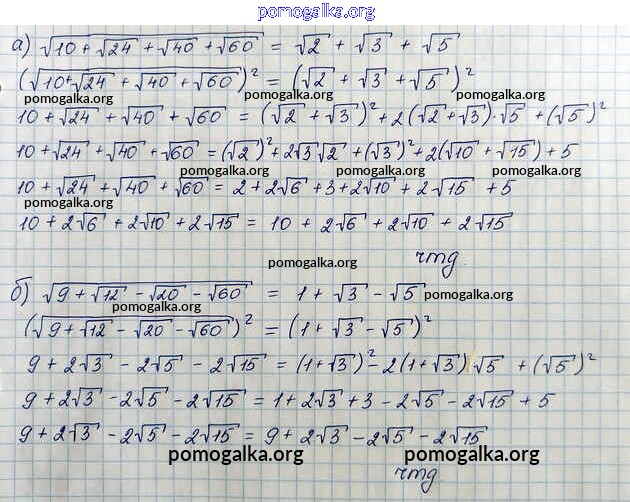 pomogalka.org
а) √(10 + √24 + √40 + √60) = √2 + √3 + √5
(√(10 + √24 + √40 + √60))² = (√2 + √3 + √5)²
pomogalka.org pomogalka.org pomogalka.org
10 + √24 + √40 + √60 = (√2 + √3)² + 2(√2 + √3)·√5 + (√5)²
10 + √24 + √40 + √60 = (√2)² + 2√3√2 + (√3)² + 2(√10 + √15) + 5
pomogalka.org pomogalka.org pomogalka.org
10 + √24 + √40 + √60 = 2 + 2√6 + 3 + 2√10 + 2√15 + 5
10 + 2√6 + 2√10 + 2√15 = 10 + 2√6 + 2√10 + 2√15
rmg.
pomogalka.org
б) √(9 + √12 - √20 - √60) = 1 + √3 - √5
pomogalka.org pomogalka.org
(√(9 + √12 - √20 - √60))² = (1 + √3 - √5)²
9 + 2√3 - 2√5 - 2√15 = (1 + √3)² - 2(1 + √3)√5 + (√5)²
9 + 2√3 - 2√5 - 2√15 = 1 + 2√3 + 3 - 2√5 - 2√15 + 5
9 + 2√3 - 2√5 - 2√15 = 9 + 2√3 - 2√5 - 2√15
pomogalka.org pomogalka.org
rmg